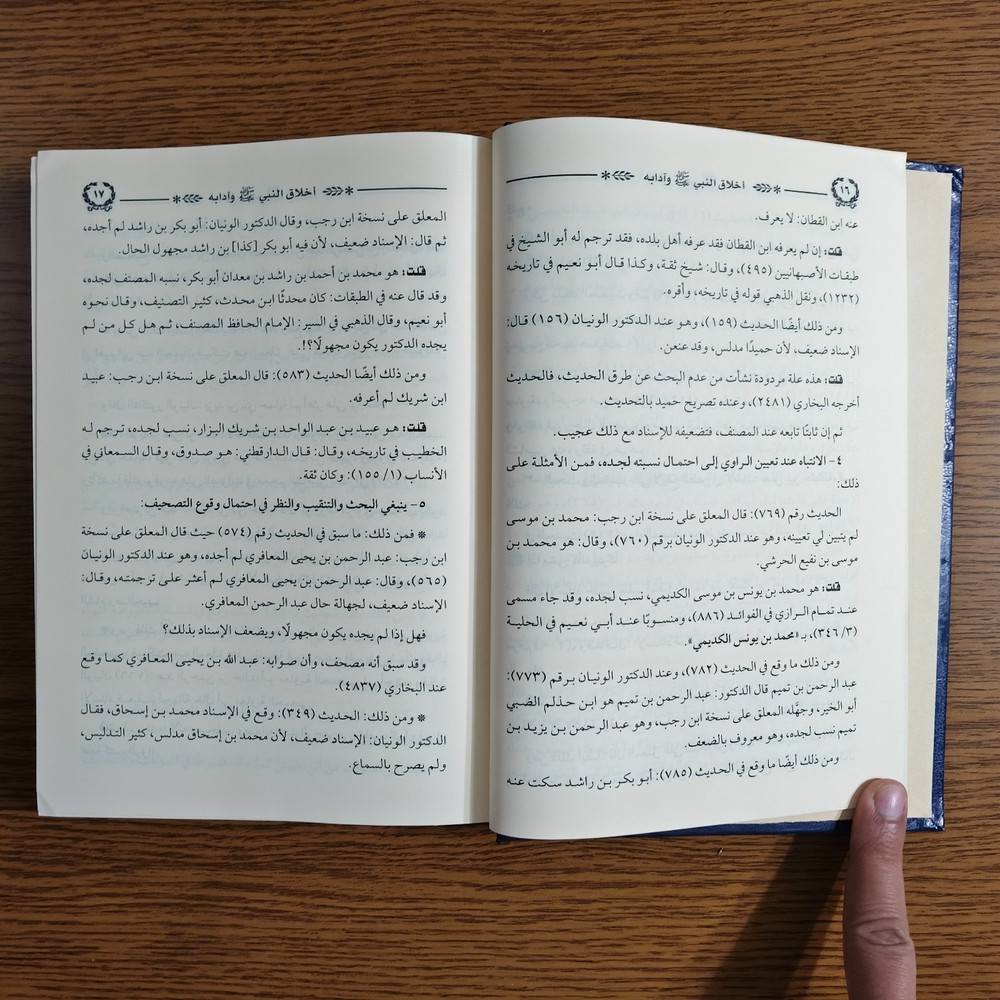 ١٦
أخلاق النبي ﷺ وآدابه
عنه ابن القطان: لا يعرف.
قلت: إن لم يعرفه ابن القطان فقد عرفه أهل بلده، فقد ترجم له أبو الشيخ في
طبقات الأصبهانيين (٤٩٥)، وقال: شيخ ثقة، وكذا قال أبو نعيم في تاريخه
(١٢٣٢)، ونقل الذهبي قوله في تاريخه، وأقره.
ومن ذلك أيضًا الحديث (١٥٩)، وهو عند الدكتور الونيان (١٥٦) قال:
الإسناد ضعيف، لأن حميدًا مدلس، وقد عنعن.
قلت: هذه علة مردودة نشأت من عدم البحث عن طرق الحديث، فالحديث
أخرجه البخاري (٢٤٨١)، وعنده تصريح حميد بالتحديث.
ثم إن ثابتًا تابعه عند المصنف، فتضعيفه للإسناد مع ذلك عجيب.
٤- الانتباه عند تعيين الراوي إلى احتمال نسبته لجده، فمن الأمثلة على
ذلك:
الحديث رقم (٧٦٩): قال المعلق على نسخة ابن رجب: محمد بن موسى
لم يتبين لي تعيينه، وهو عند الدكتور الونيان برقم (٧٦٠)، وقال: هو محمد بن
موسى بن نفيع الحرشي.
قلت: هو محمد بن يونس بن موسى الكديمي، نسب لجده، وقد جاء مسمى
عند تمام الرازي في الفوائد (٨٨٦)، ومنسوبًا عند أبي نعيم في الحلية
(٣/ ٣٤٦)، بـ «محمد بن يونس الكديمي».
ومن ذلك ما وقع في الحديث (٧٨٢)، وعند الدكتور الونيان برقم (٧٧٣):
عبد الرحمن بن تميم قال الدكتور: عبد الرحمن بن تميم هو ابن حذلم الضبي
أبو الخير، وجهَّله المعلق على نسخة ابن رجب، وهو عبد الرحمن بن يزيد بن
تميم نسب لجده، وهو معروف بالضعف.
ومن ذلك أيضًا ما وقع في الحديث (٧٨٥): أبو بكر بن راشد سكت عنه
١٧
أخلاق النبي ﷺ وآدابه
المعلق على نسخة ابن رجب، وقال الدكتور الونيان: أبو بكر بن راشد لم أجده،
ثم قال: الإسناد ضعيف، لأن فيه أبو بكر [كذا] بن راشد مجهول الحال.
قلت: هو محمد بن أحمد بن راشد بن معدان أبو بكر، نسبه المصنف لجده،
وقد قال عنه في الطبقات: كان محدثًا ابن محدث، كثير التصنيف، وقال نحوه
أبو نعيم، وقال الذهبي في السير: الإمام الحافظ المصنف، ثم هل كل من لم
يجده الدكتور يكون مجهولًا؟!.
ومن ذلك أيضًا الحديث (٥٨٣): قال المعلق على نسخة ابن رجب: عبيد
ابن شريك لم أعرفه.
قلت: هو عبيد بن عبد الواحد بن شريك البزار، نسب لجده، ترجم له
الخطيب في تاريخه، وقال: قال الدارقطني: هو صدوق، وقال السمعاني في
الأنساب (١/ ١٥٥): وكان ثقة.
٥- ينبغي البحث والتنقيب والنظر في احتمال وقوع التصحيف:
* فمن ذلك: ما سبق في الحديث رقم (٥٧٤) حيث قال المعلق على نسخة
ابن رجب: عبد الرحمن بن يحيى المعافري لم أجده، وهو عند الدكتور الونيان
(٥٦٥)، وقال: عبد الرحمن بن يحيى المعافري لم أعثر على ترجمته، وقال:
الإسناد ضعيف، لجهالة حال عبد الرحمن المعافري.
فهل إذا لم يجده يكون مجهولًا، ويضعف الإسناد بذلك؟
وقد سبق أنه مصحف، وأن صوابه: عبد الله بن يحيى المعافري كما وقع
عند البخاري (٤٨٣٧).
* ومن ذلك: الحديث (٣٤٩): وقع في الإسناد محمد بن إسحاق، فقال
الدكتور الونيان: الإسناد ضعيف، لأن محمد بن إسحاق مدلس، كثير التدليس،
ولم يصرح بالسماع.